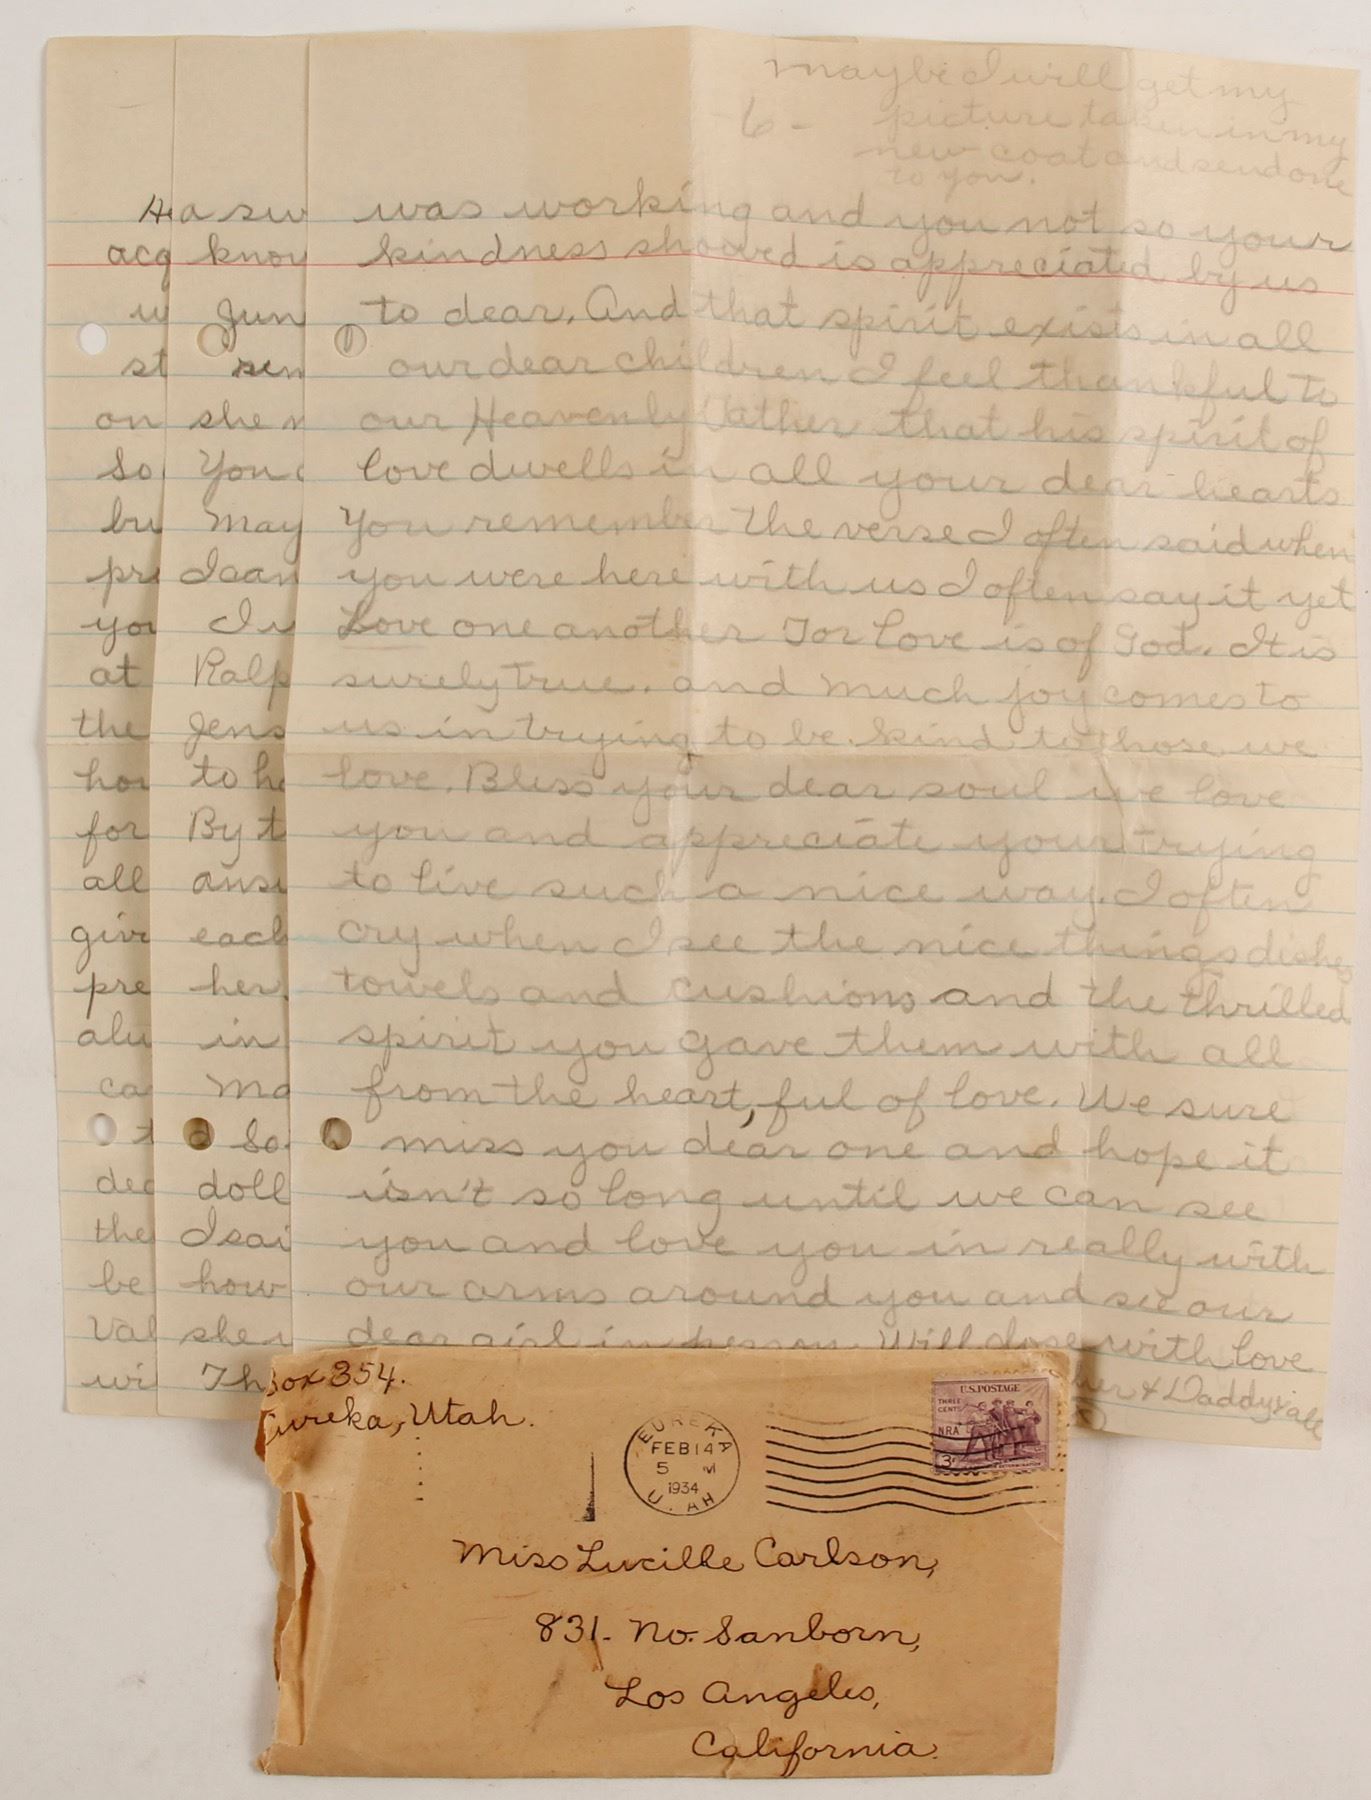 maybe I will get my
- 6 - picture taken in my
new coat and send one
to you.
was working and you not so your
kindness showed is appreciated by us
to dear. And that spirit exists in all
our dear children I feel thankful to
our Heavenly Father that his spirit of
love dwells in all your dear hearts
You remember the verse I often said when
you were here with us I often say it yet
Love one another For love is of God. It is
surely true. and much joy comes to
us in trying to be kind to those we
love. Bless your dear soul we love
you and appreciate your trying
to live such a nice way. I often
cry when I see the nice things dishes
towels and cushions and the thrilled
spirit you gave them with all
from the heart, ful of love. We sure
miss you dear one and hope it
isn't so long until we can see
you and love you in really with
our arms around you and see our
dear girl in person. Will close with love
& Daddy & all
a sw
know
Jun
sen
she
You
May
I can
I
Ralp
Jens
to he
By t
answ
each
her.
in
Ma
So
doll
I sai
how
she
Th
acq
st
on
So
bu
pre
you
at
the
hou
for
all
give
pre
alw
ca
t
dea
the
be
Val
wi
Box 354.
Eureka, Utah.
EUREKA
FEB 14
5 PM
1934
UTAH
U.S. POSTAGE
THREE
CENTS
NRA
3c
Miss Lucille Carlson,
831- No. Sanborn,
Los Angeles,
California.